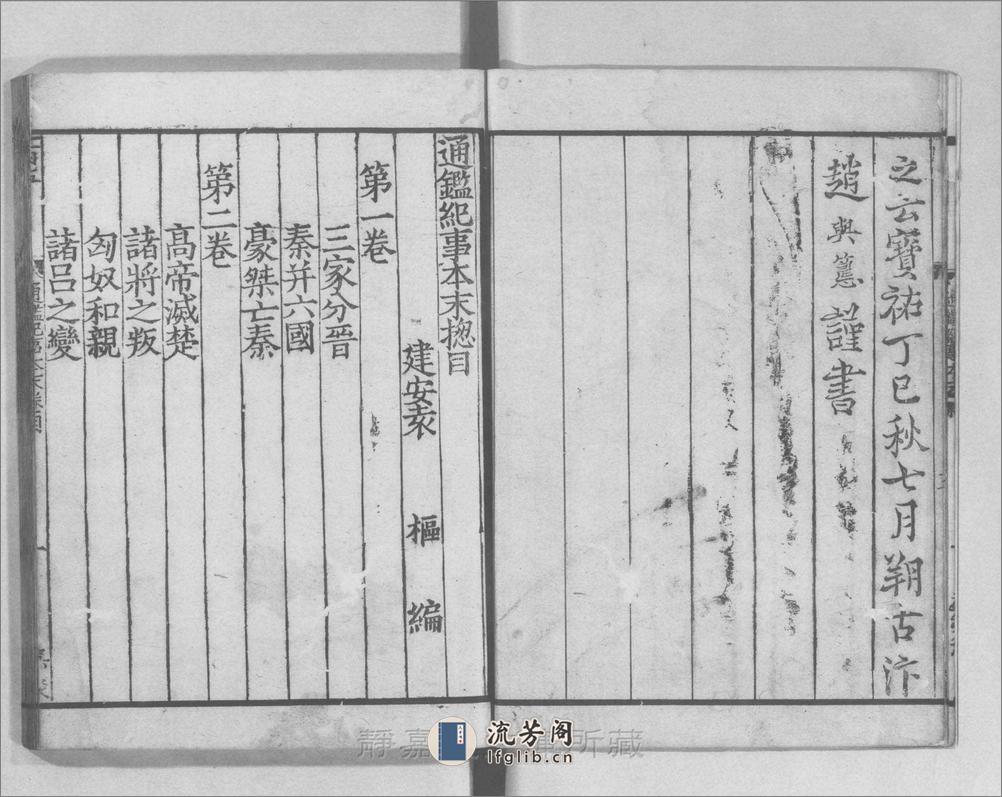 之云寶祐丁巳秋七月朔古汴
趙與𥲅謹書
通鑑紀事本末揔目
建安袁 樞 編
第一卷
三家分晉
秦并六國
豪桀亡秦
第二卷
高帝滅楚
諸將之叛
匈奴和親
諸吕之變
流芳阁
lfglib.cn